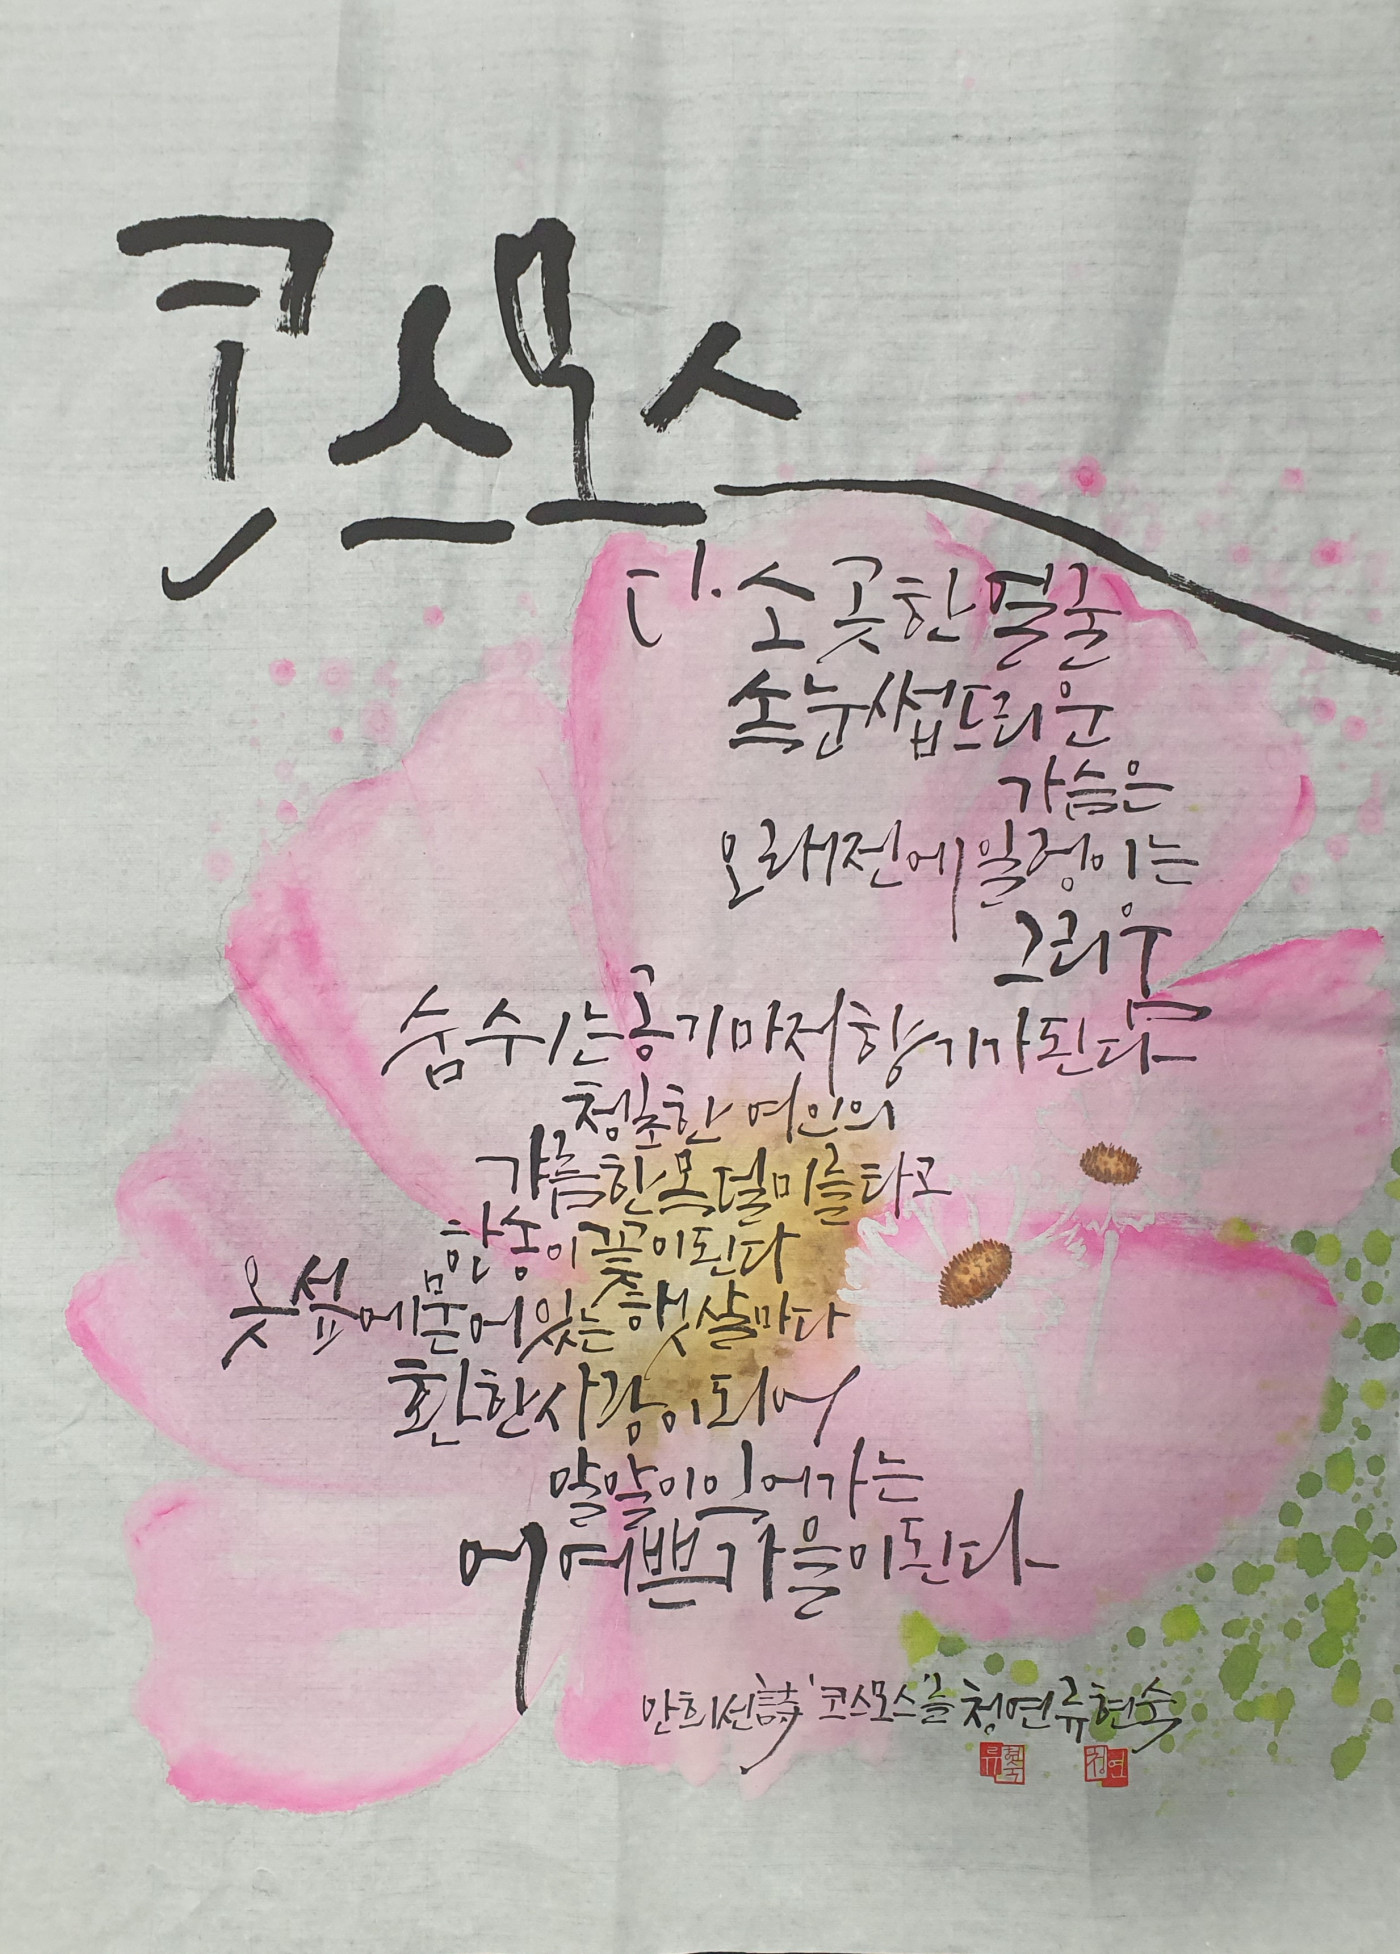 코스모스
다소곳한 얼굴
속눈썹 드리운
가슴은
오래전에 일렁이는
그리움
숨 쉬는 공기마저 향기가 된다
청초한 여인의
갸름한 목덜미를 타고
한송이 꽃이 된다
옷섶에 묻어 있는 햇살마다
환한 사랑이 되어
알알이 익어가는
어여쁜 가을이 된다
안희선 詩 '코스모스'를 청연 류현숙
류현숙 청연